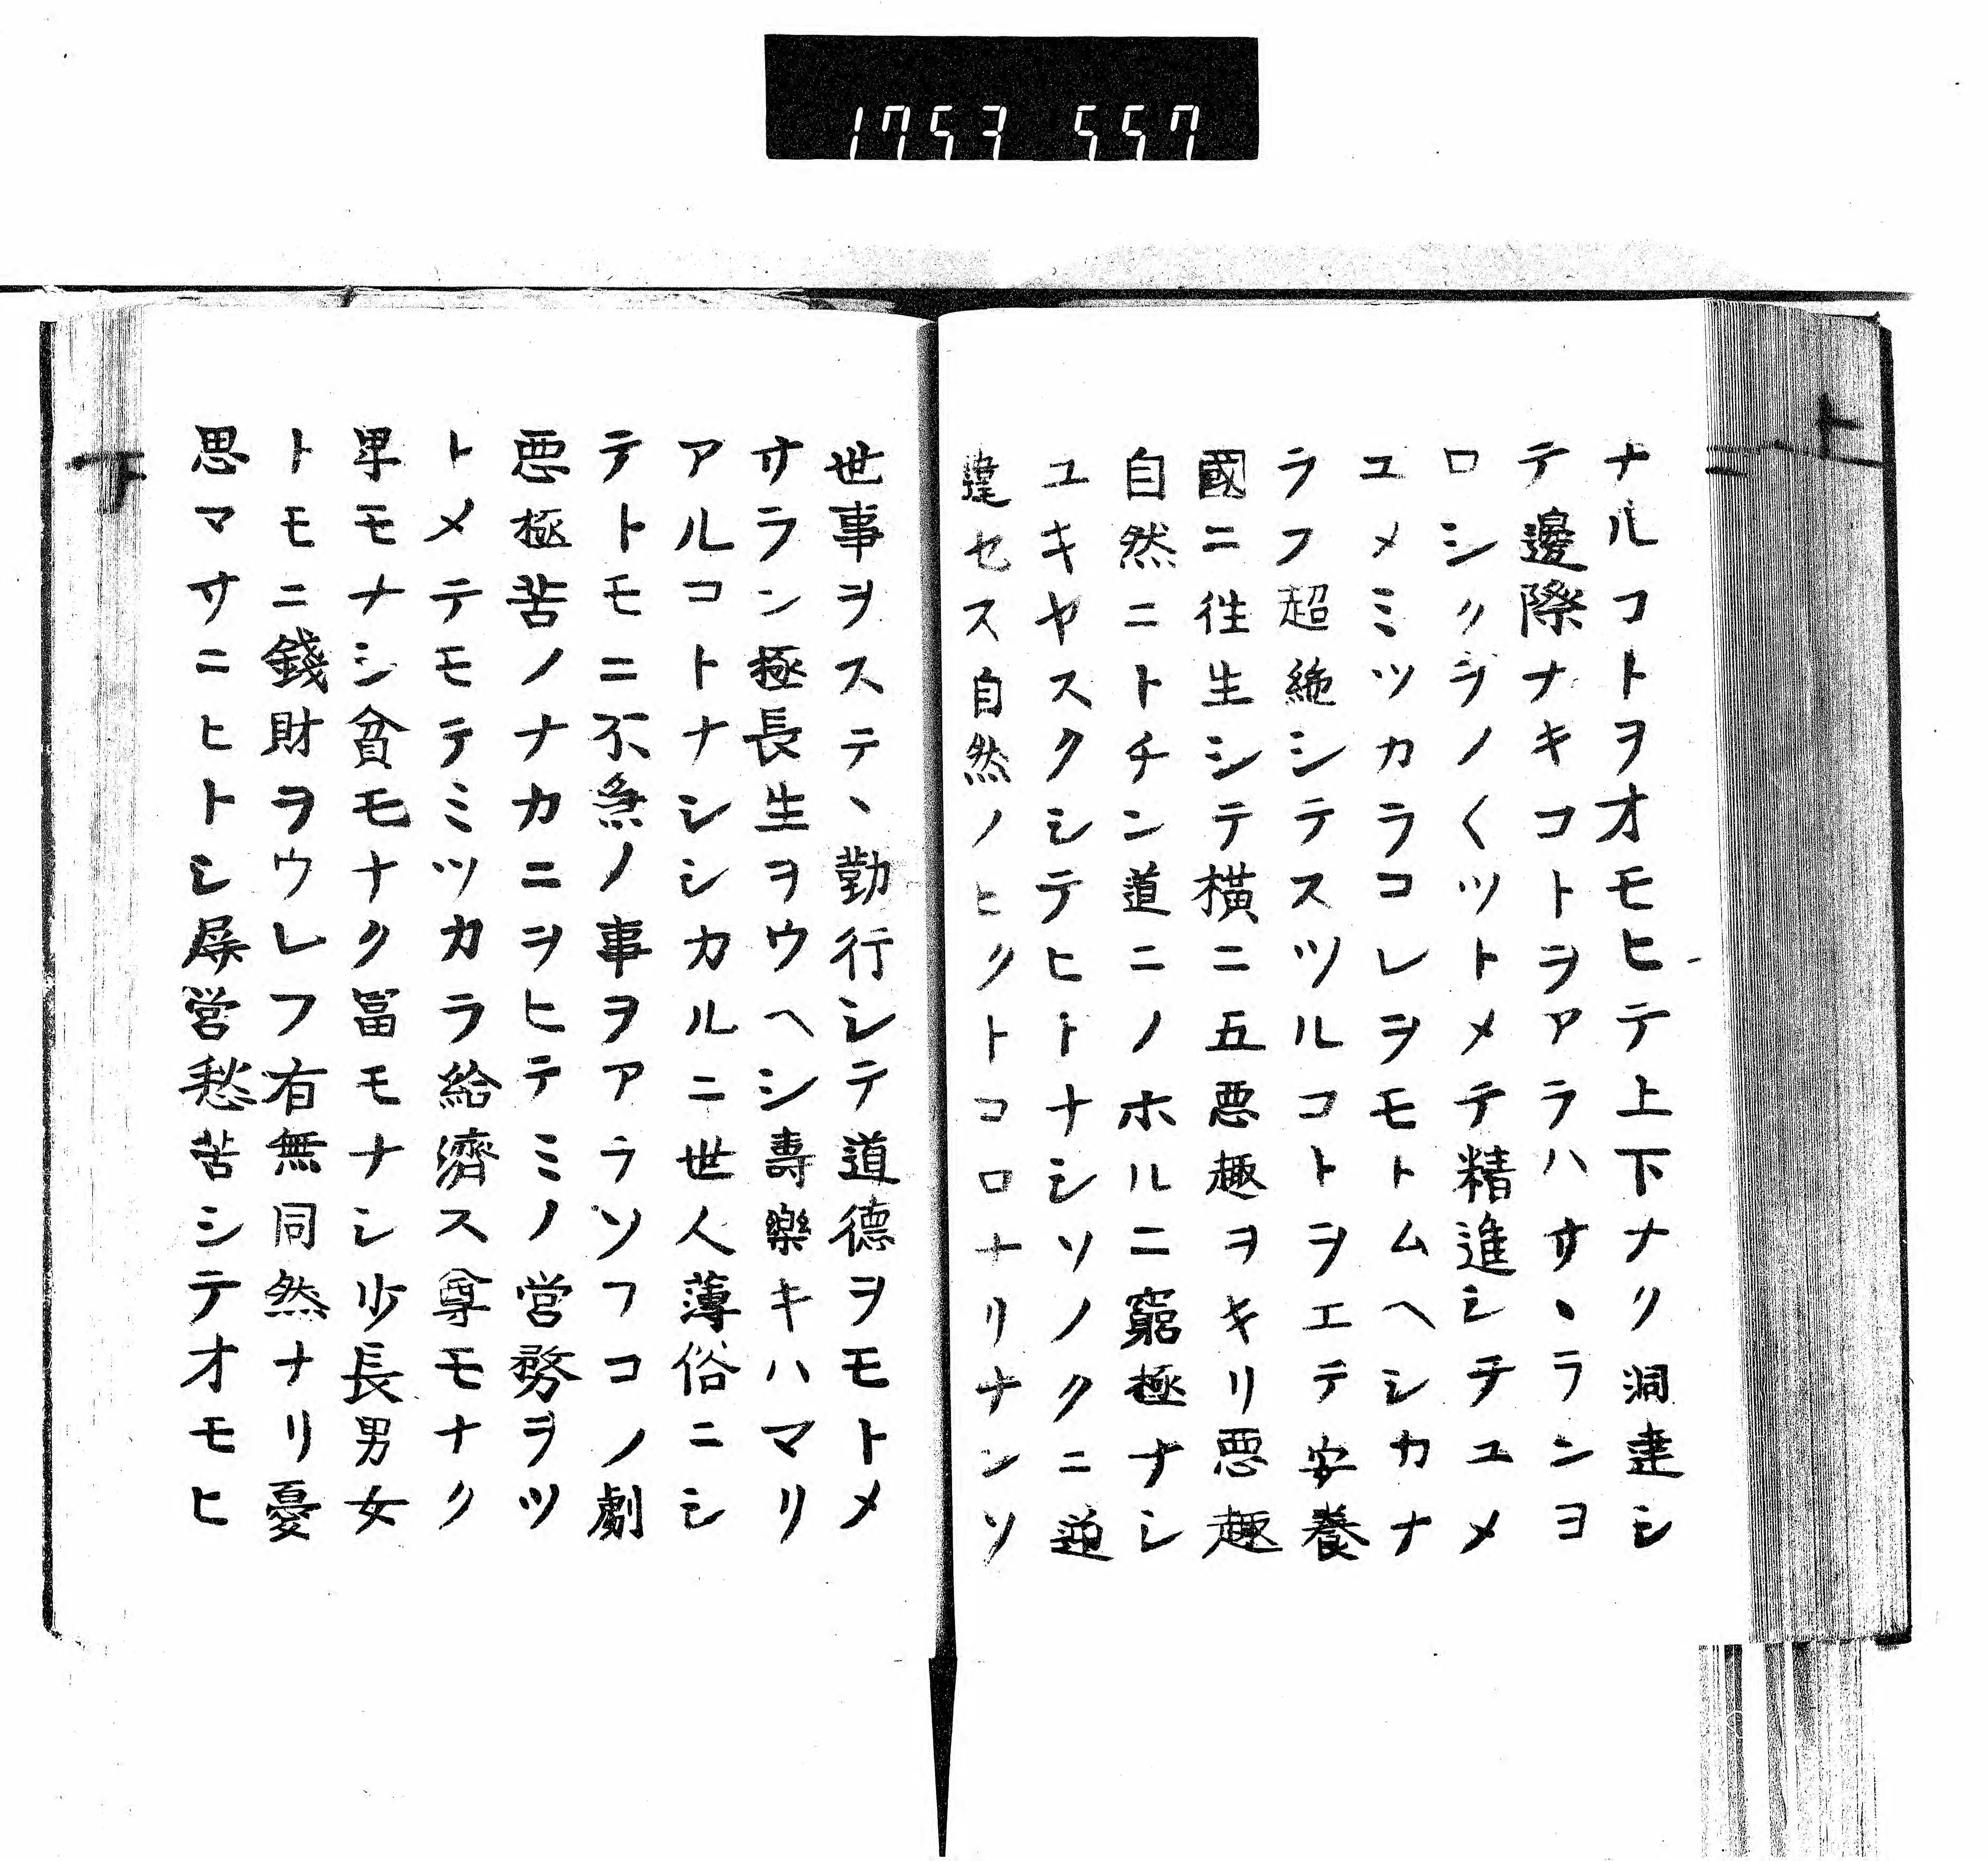 1753 557
上
ナルコトヲオモヒテ上下ナク洞達シ
テ邊際ナキコトヲアラハサヽランヨ
ロシクヲノ〱ツトメテ精進シチユメ
ユメミツカラコレヲモトムヘシカナ
ラフ超絶シテスツルコトヲエテ安養
國ニ徃生シテ横ニ五悪趣ヲキリ悪趣
自然ニトチン道ニノホルニ窮極ナシ
ユキヤスクシテヒトナシソノクニ逆
違セス自然ノヒクトコロナリナンソ
世事ヲステヽ勤行シテ道德ヲモトメ
サラン極長生ヲウヘシ壽樂キハマリ
アルコトナシシカルニ世人薄俗ニシ
テトモニ不急ノ事ヲアラソフコノ劇
悪極苦ノナカニヲヒテミノ営務ヲツ
トメテモテミツカラ給濟ス尊モナク
卑モナシ貧モナク冨モナシ少長男女
トモニ錢財ヲウレフ有無同然ナリ憂
思マサニヒトシ屏営愁苦シテオモヒ
下